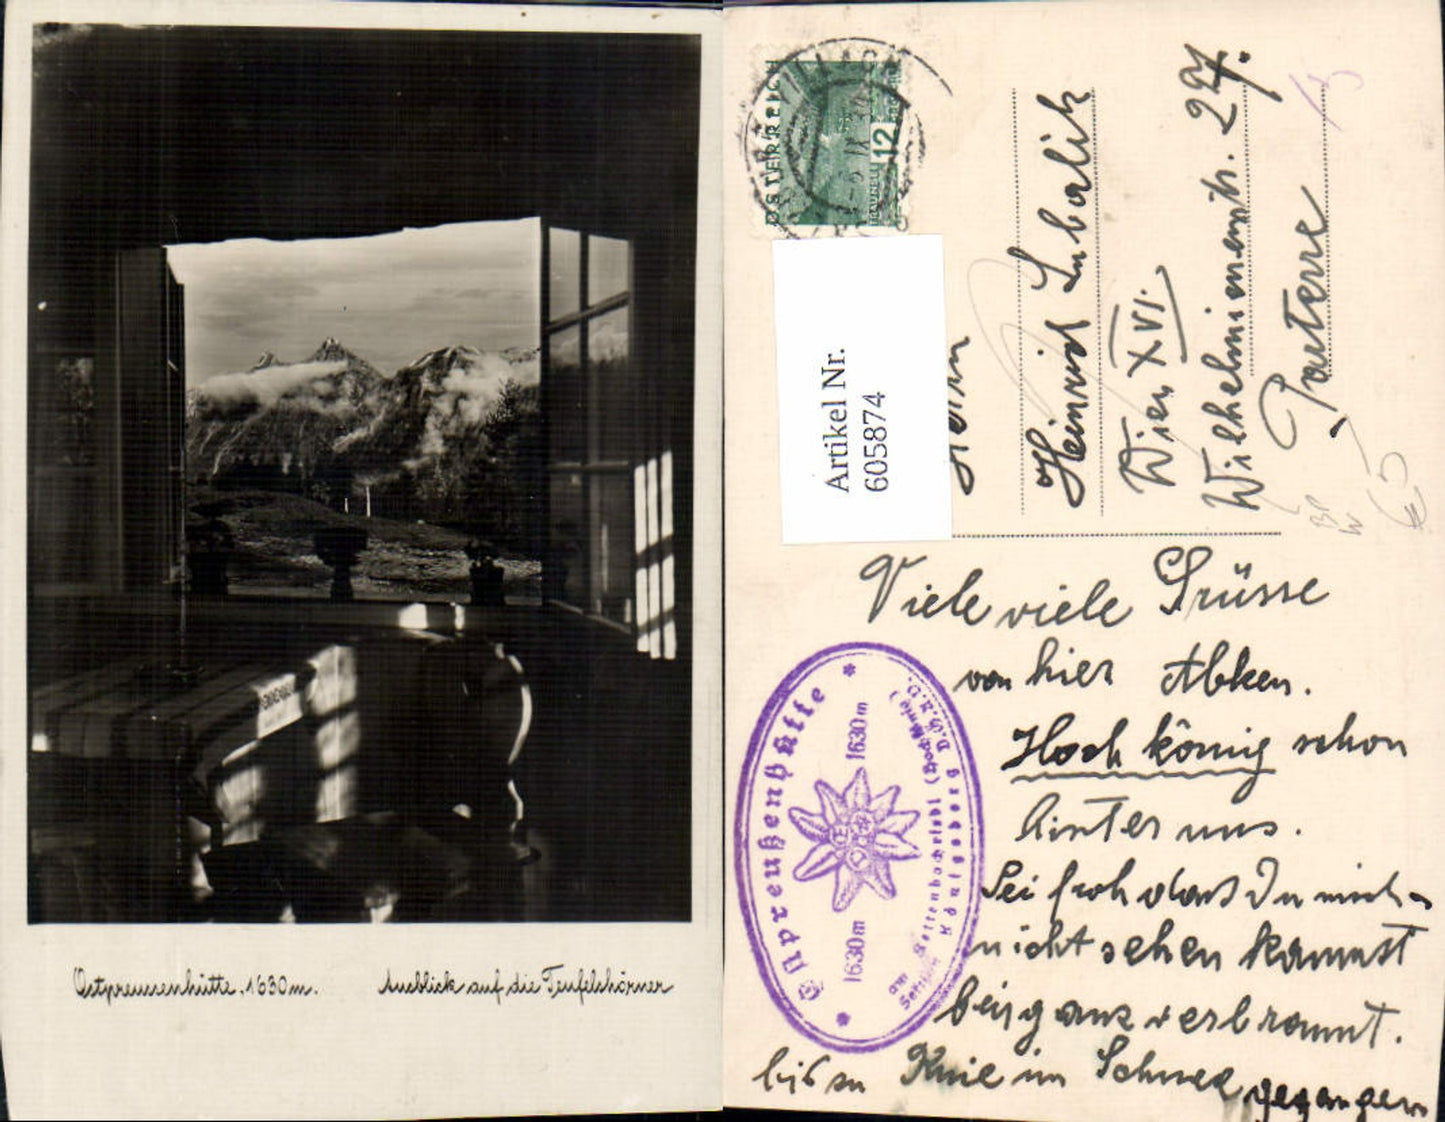 Ostpreussenhütte. 1630m. Ausblick auf die Teufelshörner
ÖSTERREICH
12
TRAUNSEE
Artikel Nr.
605874
Herrn
Heinrich Lubalik
Wien XVI.
Wilhelminenstr. 27.
Parterre
Viele viele Grüsse
von hier Abken.
Hochkönig schon
hinter uns.
Sei froh dass Du mich
nicht sehen kannst
bin ganz verbrannt.
bis zu Knie im Schnee gegangen
Ostpreußenhütte
1630m 1630m
am Rettenbachriedl (Hochkönig)
Sektion Königsberg D.Ö.A.V.